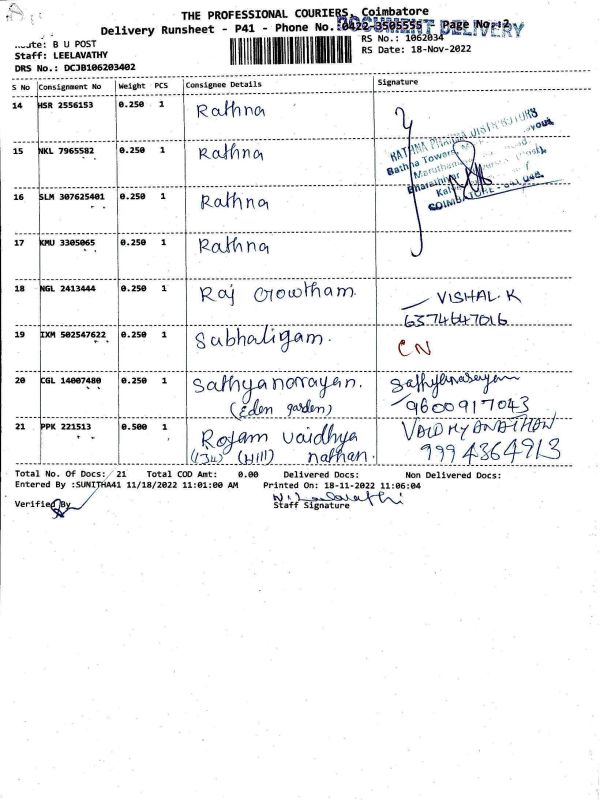 THE PROFESSIONAL COURIERS, Coimbatore
Delivery Runsheet - P41 - Phone No.:0422-3505555 Page No.:2
DOCUMENT DELIVERY
Route: B U POST
RS No.: 1062034
Staff: LEELAVATHY
RS Date: 18-Nov-2022
DRS No.: DCJB106203402
S No Consignment No Weight PCS Consignee Details Signature
14 HSR 2556153 0.250 1 Rathna
RATHNA PHARMA DISTRIBUTORS
Bathna Towers
15 NKL 7965582 0.250 1 Rathna
16 SLM 307625401 0.250 1 Rathna
17 KMU 3305065 0.250 1 Rathna
18 NGL 2413444 0.250 1 Raj Gowtham. VISHAL.K
6374647016
19 IXM 502547622 0.250 1 Subhaligam. CN
20 CGL 14007480 0.250 1 Sathyanarayan. Sathyanarayan
(Eden garden) 9600917043
21 PPK 221513 0.500 1 Rajam vaidhya VAIDHYANATHAN
(134) (Hill) nathan. 9994364913
Total No. Of Docs: 21 Total COD Amt: 0.00 Delivered Docs: Non Delivered Docs:
Entered By :SUNITHA41 11/18/2022 11:01:00 AM Printed On: 18-11-2022 11:06:04
Verified By
Staff Signature